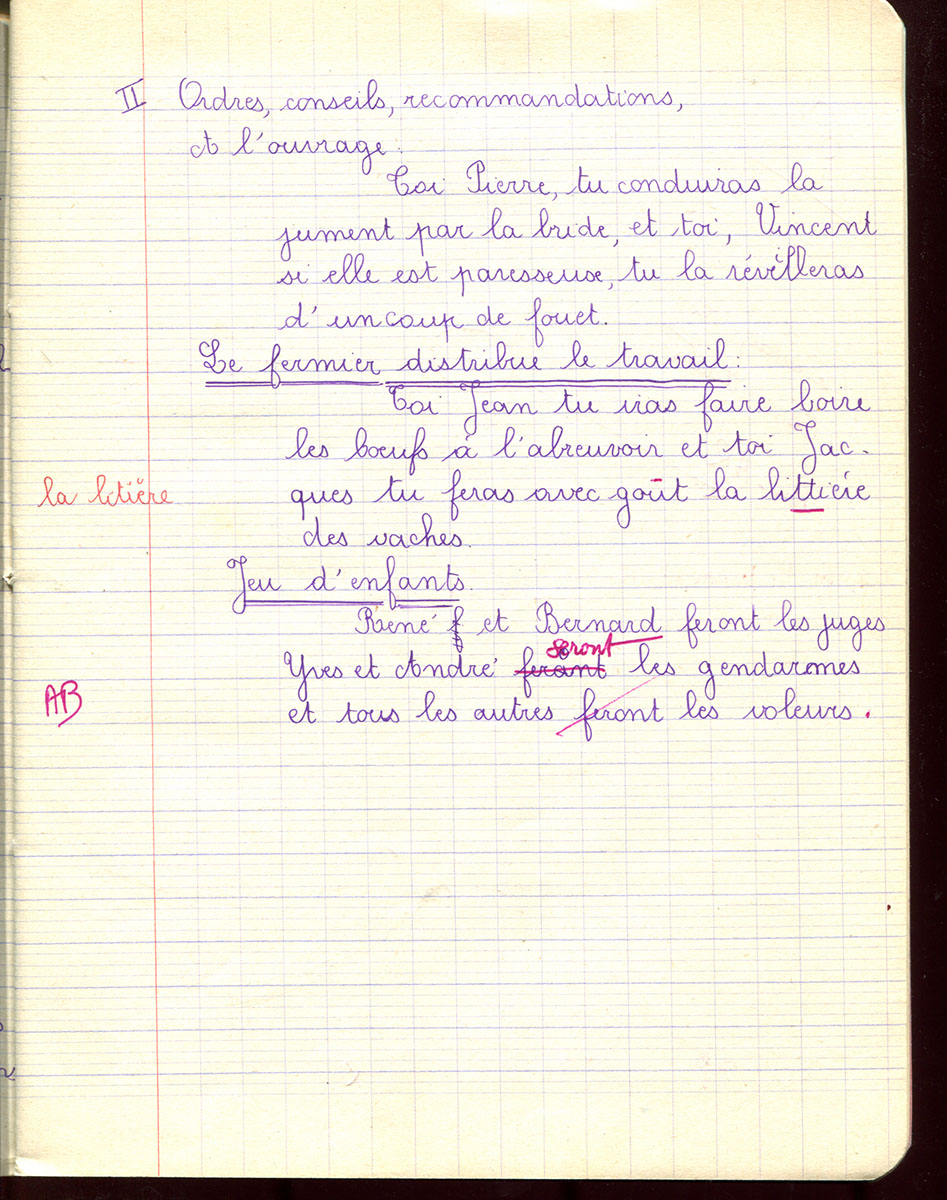 II Ordres, conseils, recommandations,
A l'ouvrage :
Toi Pierre, tu conduiras la
jument par la bride, et toi, Vincent
si elle est paresseuse, tu la réveilleras
d'un coup de fouet.
Le fermier distribue le travail :
Toi Jean tu iras faire boire
les bœufs à l'abreuvoir et toi Jac-
la litière
ques tu feras avec goût la littiérie
des vaches.
Jeu d'enfants.
René f et Bernard feront les juges
seront
Yves et André feront les gendarmes
AB
et tous les autres feront les voleurs.